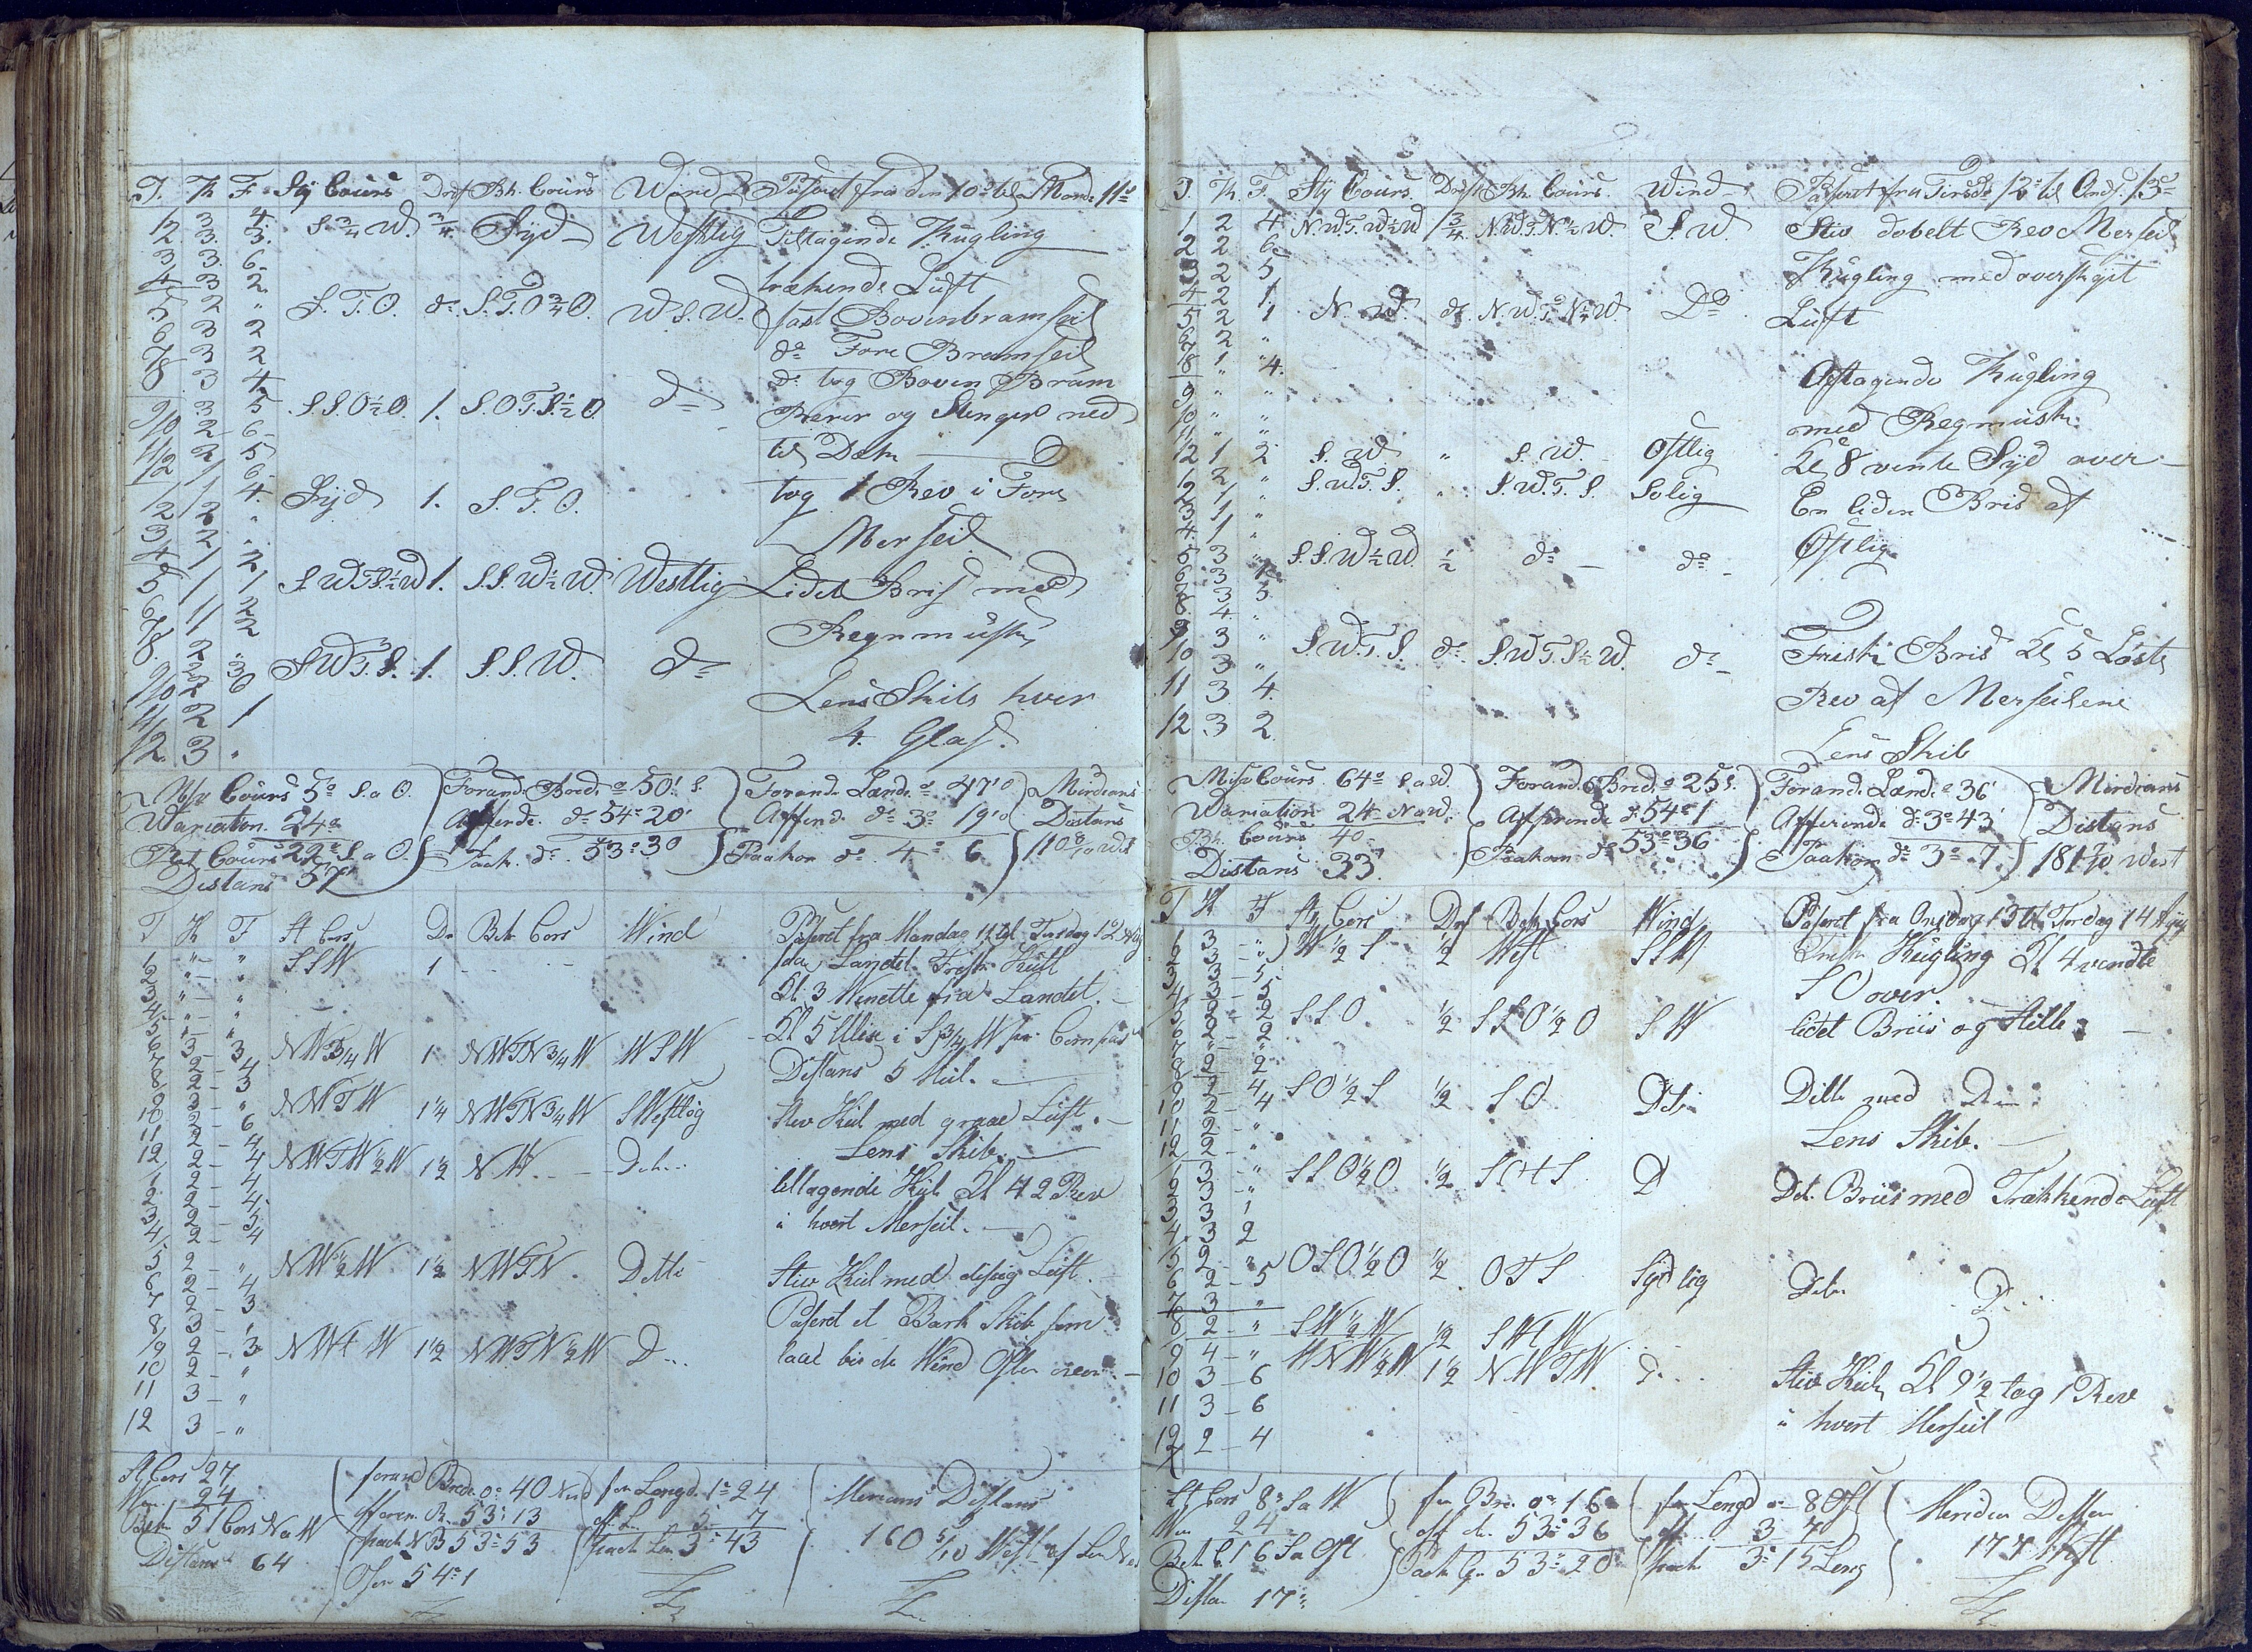 T. K. F. Sty Cours Drift Bh. Cours Wind Passeret fra den 10de til Mand. 11te
1 3 4 S ¾ W. ¾ Syd Westlig Tiltagende Kugling
2 3 5
3 3 6 trækende Luft
4 3 2
5 2 " S. T. O. do S. T. O ¾ O. W. S. W. fast Bovenbramseil
6 3 2 do Fore Bramseil
7 3 2
8 3 4 do tog Boven Bram
9 3 5 S. S. O ½ O. 1. S. O. T. S. ½ O. do Rærer og Stenger ned
10 2 6
11 2 5 til Dæk
12 1 6
1 1 4 Syd 1. S. T. O. tog 1 Rev i Fore
2 2 "
3 2 " Merseil
4 1 2
5 1 1 S W. T. S. ½ W 1. S. S. W. ½ W. Westlig Lidet Bris med
6 1 2
7 1 2 Regn
8 2 "
9 2 3 S W T. S. 1. S. S. W. do
10 2 6 Lens Skib hver
11 2 1
12 3 " 4. Glas.
Misv Cours 5° S. a O. Forand. Bred. ° 50' S. Forand. Længd. ° 47' O Meridians
Wariation 24° Affarende do 54° 20' Affend. do 3° 19' Distans
Ret Cours 29° S a O. Paak. do 53° 30 Paakom do 4° 6 110 8/10 West
Distans 57'
T K F St Cors Dr Beh Cors Wind Passeret fra Mandag 11 til Tirsdag 12 Aug
1 " " S S W 1 Landet. Frisk Kull
2 " "
3 " " Kl 3 Wendte fra Landet.
4 " "
5 " " Kl 5 i S ¾ W per Compas
6 3 3 N W T ¾ W 1 N W T N ¾ W W S W
7 2 4 Distans 5 Miil.
8 2 3
9 3 " N W T W 1¼ N W T N ¾ W S Westlig Stiv Kul med graae Luft.
10 2 6
11 2 4 Lens Skib.
12 2 4 N W T W ½ W 1½ N W. Dito
1 2 4 tiltagende Kul Kl 4 2 Rev
2 2 4
3 2 5 i hvert Merseil.
4 2 4
5 2 " N W ½ W 1½ N W T N. Ditto Stiv Kul med disig Luft.
6 2 4
7 2 3 Passeret et Bark Skib som
8 3 "
9 2 3 N W t W 1½ N W T N ½ W D laae bi de Wind Øster over.
10 2 "
11 3 "
12 3 "
St Cors 27 forand Brede 0° 40 Nord for Længd. 1° 24 Merians Distans
Wa 24 afferen B. 53° 13 aff L. 5 7
Beh 51 Cors N a W paak N B 53° 53 paak Læn 3° 43 160 5/10 West af
Distans 64 Obser 54° 1
T. K. F. Sty Cours. Drift Bh. Cours Wind Passeret fra Tirsd. 12te til Onsd. 13de
1 2 4 N. W. T. W ½ W 1¾ N. W. T. N ½ W. S. W. Stiv dobelt Rev Merseil
2 2 6
3 2 5 Kugling med overskyet
4 2 1 N. W. do N. W. T. N ½ W. Do
5 2 1 Luft
6 2 "
7 1 "
8 " 4 Aftagende Kugling
9 " "
10 " " med Regn
11 " "
12 1 2 S. W " S. W. Østlig Kl 8 vente Syd over
1 2 " S. W. T. S. " S. W. T. S. Solig En liden Bris af
2 1 "
3 1 "
4 1 " Østlig
5 3 " S. S. W ½ W. ½ do do
6 3 1
7 3 5
8 4 "
9 3 " S. W. T. S. do S. W. T. S ½ W. do Frisk Bris Kl 5 Løste
10 3 "
11 3 4 Rev af Merseilene
12 3 2
Lens Skib
Misv Cours 64° S a W. Forand. Bred. ° 25' S. Forand. Længd. ° 36' Meridians
Wariation 24 N a W. Affarende do 54° 1 Affarende do 3° 43 Distans
Bh. Cours 40 Paakom do 53° 36 Paakom do 3° 7 181 7/10 West
Distans 33'
T K F St Cors Drf Beh Cors Wind Passeret fra Onsdag 13 til Tordag 14 Aug
1 3 " W ½ S ½ West S S W Frisk Kugling Kl 4 vendte
S O over
3 5
3 5
2 2 S S O ½ S S O ½ O S W lidet Briis og Stille
2 2
8 2 2
9 2 4 S O ½ S ½ S O Dito Ditto med D
10 2 4
11 2 " Lens Skib.
12 2 "
1 3 " S S O ½ O ½ S O t S D Dito Briis med Trækkende Luft
2 3 "
3 3 1
4 3 2
5 2 " O S O ½ O ½ O T S Sydlig Dito D
6 2 5
7 3 "
8 2 " S W ½ W ½ S W t W
9 4 " W N W ½ W 1½ N. W T W D Stiv Kul, Kl 9½ tog 1 Rev
10 3 6
11 3 6 i hvert Merseil
12 2 4
St Cors 8° S a W for Bre. 0° 16 for Længd 0° 8 Øst Meridian Distan
Wa 24 aff do 53° 36 aff 3 7
Beh C. 16 S a Ost Paak 53° 20 paak 3° 15 Leng 177 West
Distan 17